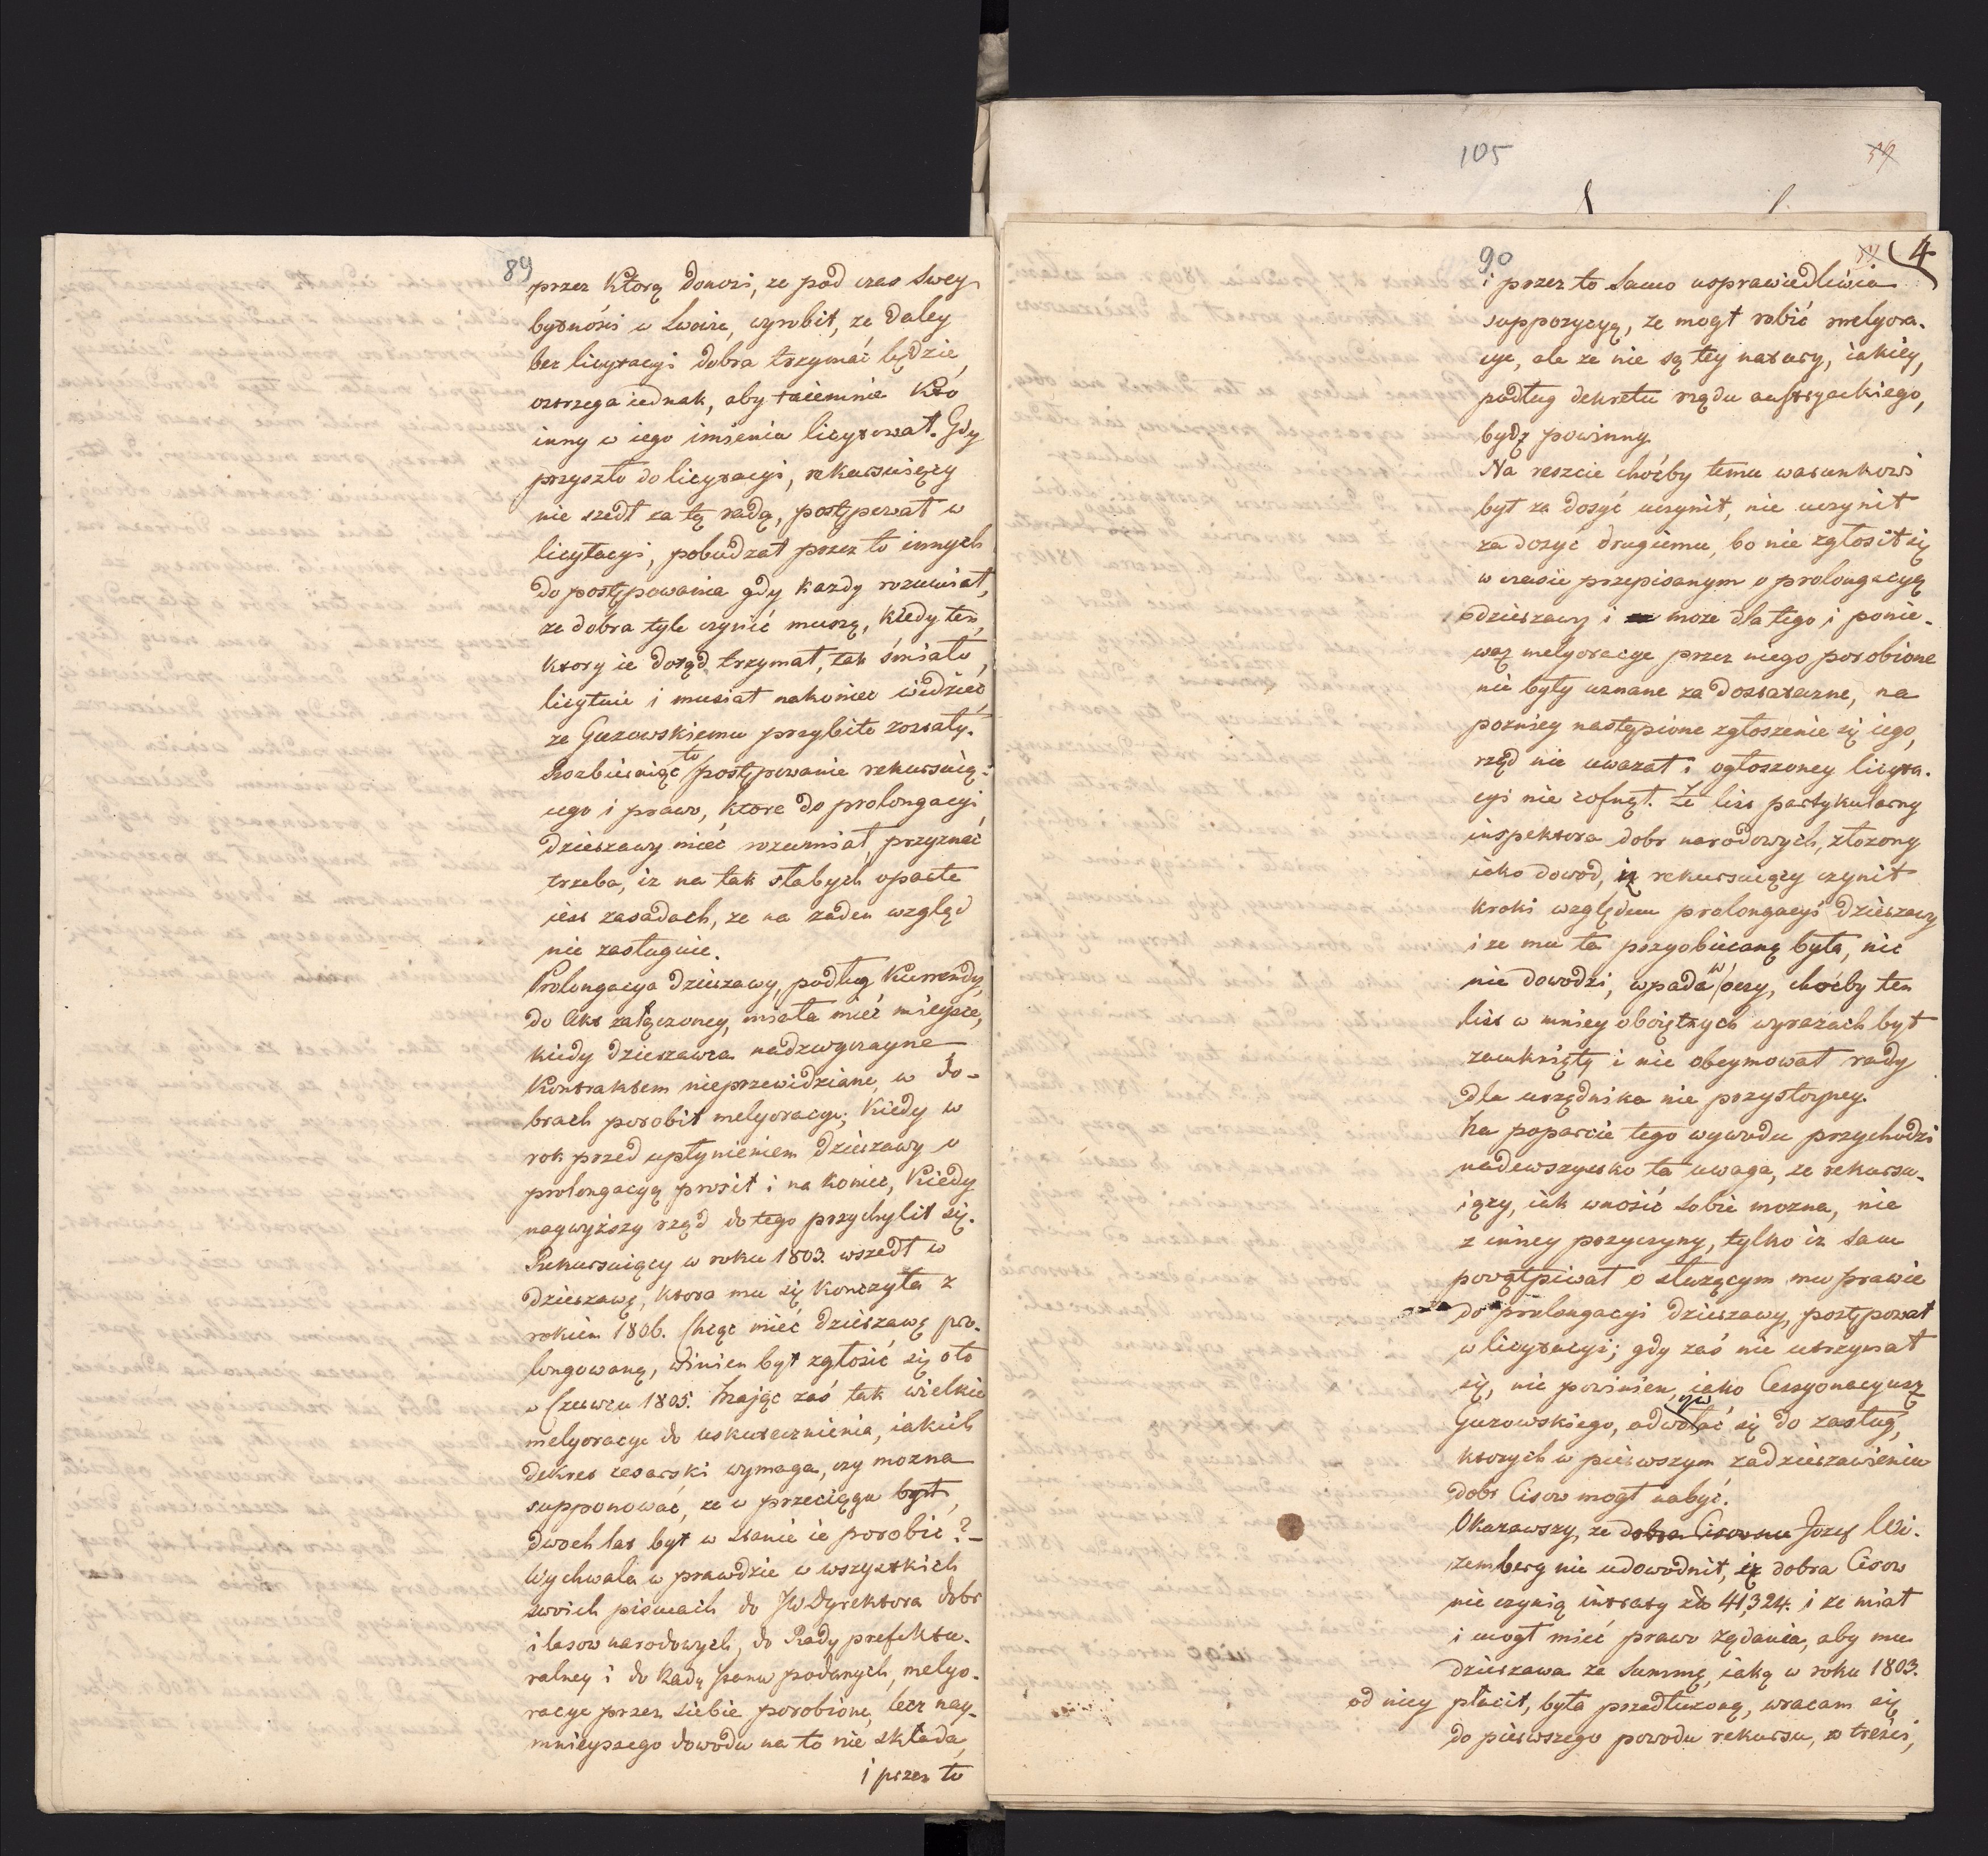 89
przez Ktorą donosi, ze pod czas swey
bytności w Lwoire, wyrobił, ze daley
bez licytacyi dobra trzymać będzie,
ostrzega iednak, aby taiemnie Kto
inny w iego imieniu licytował. Gdy
przyszło do licytacyi, rekursuiący
nie szedł za tą radą, postępował w
licytacyi, pobudzał przez to innych
do postępowania gdy kazdy rozumiał,
ze dobra tyle czynić muszą, kiedy ten,
ktory ie dotąd trzymał, tak śmiało,
licytuie i musiał nakoniec widzieć,
ze Guzowskiemu przybite zostały.
Rozbieraiąc to postępowanie rekursuią-
cego i prawo, ktore do prolongacyi
dzierzawy mieć rozumiał, przyznać
trzeba, iz na tak słabych oparte
iest zasadach, ze na zaden wzgląd
nie zasługuie.
Prolongacya dzierzawy, podług Kurrendy,
do Akt załączoney, miała mieć mieysce,
kiedy dzierzawca nadzwyczayne
Kontraktem nieprzewidziane, w do-
brach porobił melyoracye; Kiedy w
rok przed upłynieniem dzierzawy o
prolongacyą prosił i na koniec, Kiedy
naywyższy rząd do tego przychylił się.
Rekursuiący w roku 1803. wszedł w
dzierzawę, ktora mu się kończyła z
rokiem 1806. Chcąc mieć dzierzawę pro-
longowaną, winien był zgłosić się o to
w Czerwcu 1805. Maiąc zaś tak wielkie
melyoracye do uskutecznienia, iakich
dekret cesarski wymaga, czy mozna
supponować, ze w przeciągu był,
dwoch lat był w stanie ie porobić?-
Wychwala w prawdzie w wszystkich
swoich pismach do JW Dyrektora dobr
i lasow narodowych, do Rady prefektu-
ralney i do Rady stanu podanych, melyo-
racye przez siebie porobione, lecz nay-
mnieyszego dowodu na to nie składa,
i przez to
105
90
4
i przez to samo usprawiedliwia
suppozycyą, ze mogł robić melyora-
cye, ale ze nie są tey natury, iakiey,
podług dekretu rządu austryackiego,
bydź powinny.
Na reszcie choćby temu warunkowi
był za dosyć uczynił, nie uczynił
za dosyć drugiemu, bo nie zgłosił się
w czasie przepisanym o prolongacyą
dzierzawy i moze dla tego i ponie-
waz melyoracye przez niego porobione
nie były uznane za dostateczne, na
pozniey nastąpione zgłoszenie się iego,
rząd nie uwazał i ogłoszoney licyta-
cyi nie cofnął. Ze list partykularny
inspektora dobr narodowych, złozony
iako dowod, iz rekursuiący czynił
kroki względem prolongacyi dzierzawy
i ze mu ta przyobiecaną była, nic
nie dowodzi, wpada w oczy, choćby ten
list w mniey oboiętnych wyrazach był
zamknięty i nie obeymował rady
dla urzędnika nie przystoyney.
Na poparcie tego wywodu przychodzi
nadewszystko ta uwaga, ze rekursu-
iący, iak wnosić sobie mozna, nie
z inney przyczyny, tylko iz sam
powątpiwał o słuzącym mu prawie
do prolongacyi dzierzawy, postępował
w licytacyi; gdy zaś nie utrzymał
się, nie powinien, iako Cessyonaryusz
Guzowskiego, odwoływać się do zasług,
ktorych w pierwszym zadzierzawieniu
dobr Cisow mogł nabyć.
Okazawszy, ze dobra Cisowu Jozef Wi-
zemberg nie udowodnił, iz dobra Cisow
nie czynią intraty zło 41,324. i ze miał
i mogł mieć prawo ządania, aby mu
dzierzawa za summę, iaką w roku 1803.
od niey płacił, była przedłuzoną, wracam się
do pierwszego powodu rekursu, w treści,